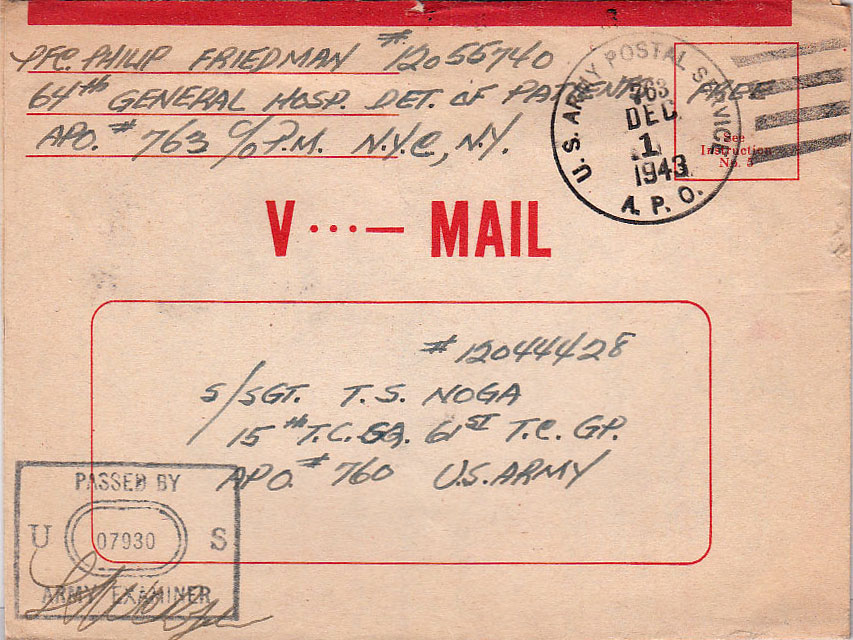 PFC. PHILIP FRIEDMAN #12055740
64th GENERAL HOSP. DET. OF PATIENTS FREE
APO. # 763 C/O P.M. N.Y.C, N.Y.
U.S. ARMY POSTAL SERVICE
763
DEC
1
1943
A. P. O.
See
Instruction
No. 5
V ···— MAIL
#12044428
S/SGT. T. S. NOGA
15th T.C. SQ. 61ST T.C. GP.
APO. # 760 U.S. ARMY
PASSED BY
U 07930 S
ARMY EXAMINER